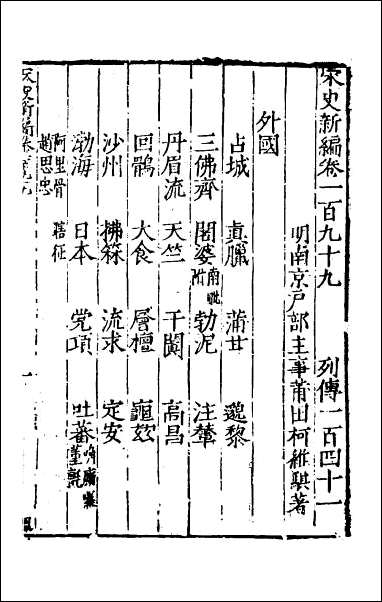 宋史新編卷一百九十九 列傳一百四十一
明南京戶部主事莆田柯維騏著
外國
占城 真臘 蒲甘 邈黎
三佛齊 闍婆南毗附 勃泥 注輦
丹眉流 天竺 于闐 高昌
回鶻 大食 層檀 龜茲
沙州 拂菻 流求 定安
渤海 日本 党項 吐蕃唃廝囉 董氊
阿里骨 瞎征
趙思忠